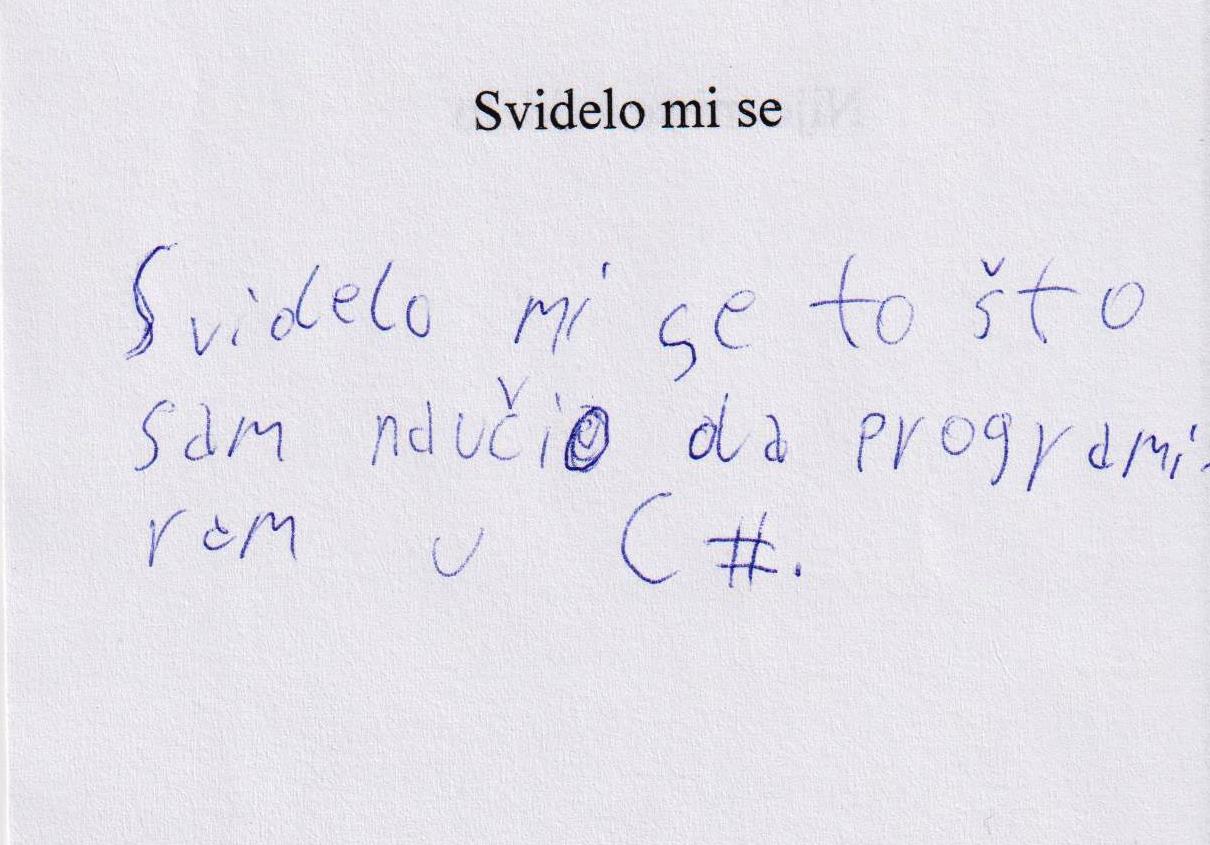 Svidelo mi se
Svidelo mi se to što
sam naučio da programi-
ram u C#.